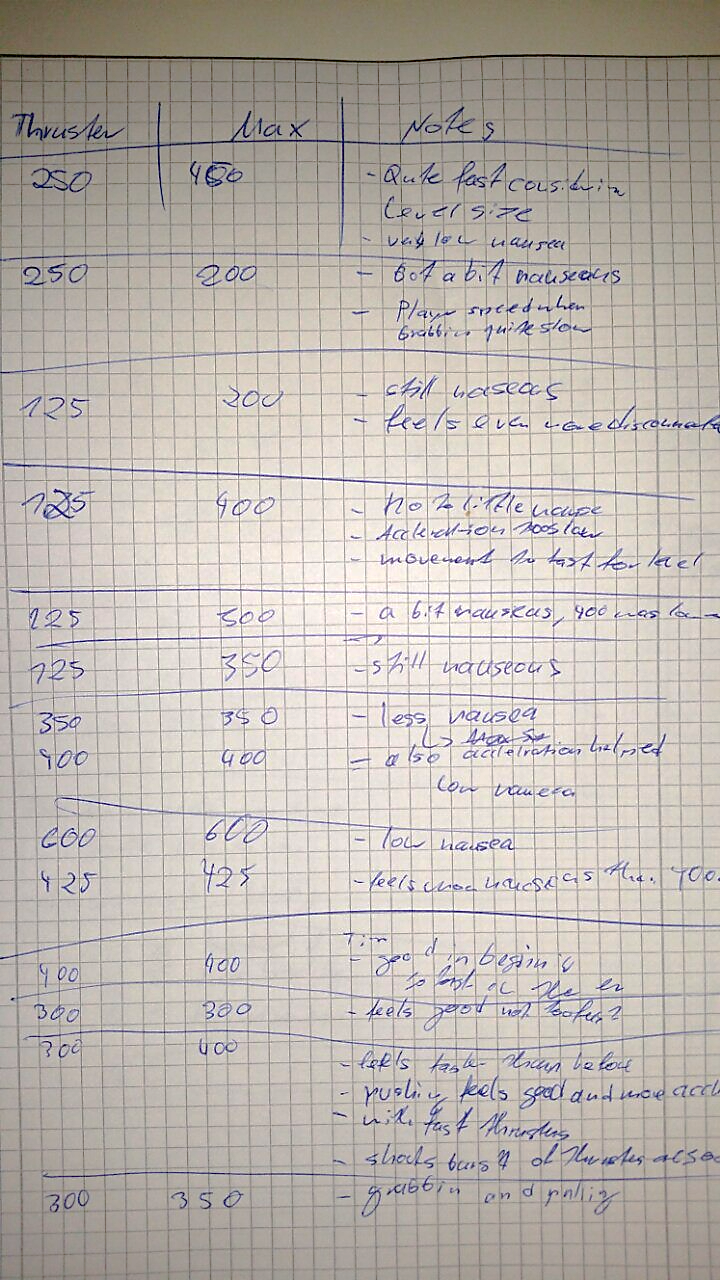 Thruster Max Notes
250 - Quite fast
level size
- very low nausea
250 200 - Got a bit nauseous
- Player speed when
Grabbin quite slow
125 200 - still nauseous
- feels even more
125 400 - no to little
- Accleration too slow
- movement to fast for
125 300 - a bit nauseas, 400 was
125 350 - still nauseous
350 350 - less nausea
400 400 - also accleration helped
low nausea
600 600 - low nausea
425 425 - feels more nauseous 400
Tim
400 400 - good in begin
300 300 - feels good not
300 400 - feels than before
- pushing feels good and more
- with fast thrusters
- of thrusters
300 350 - grabbin and